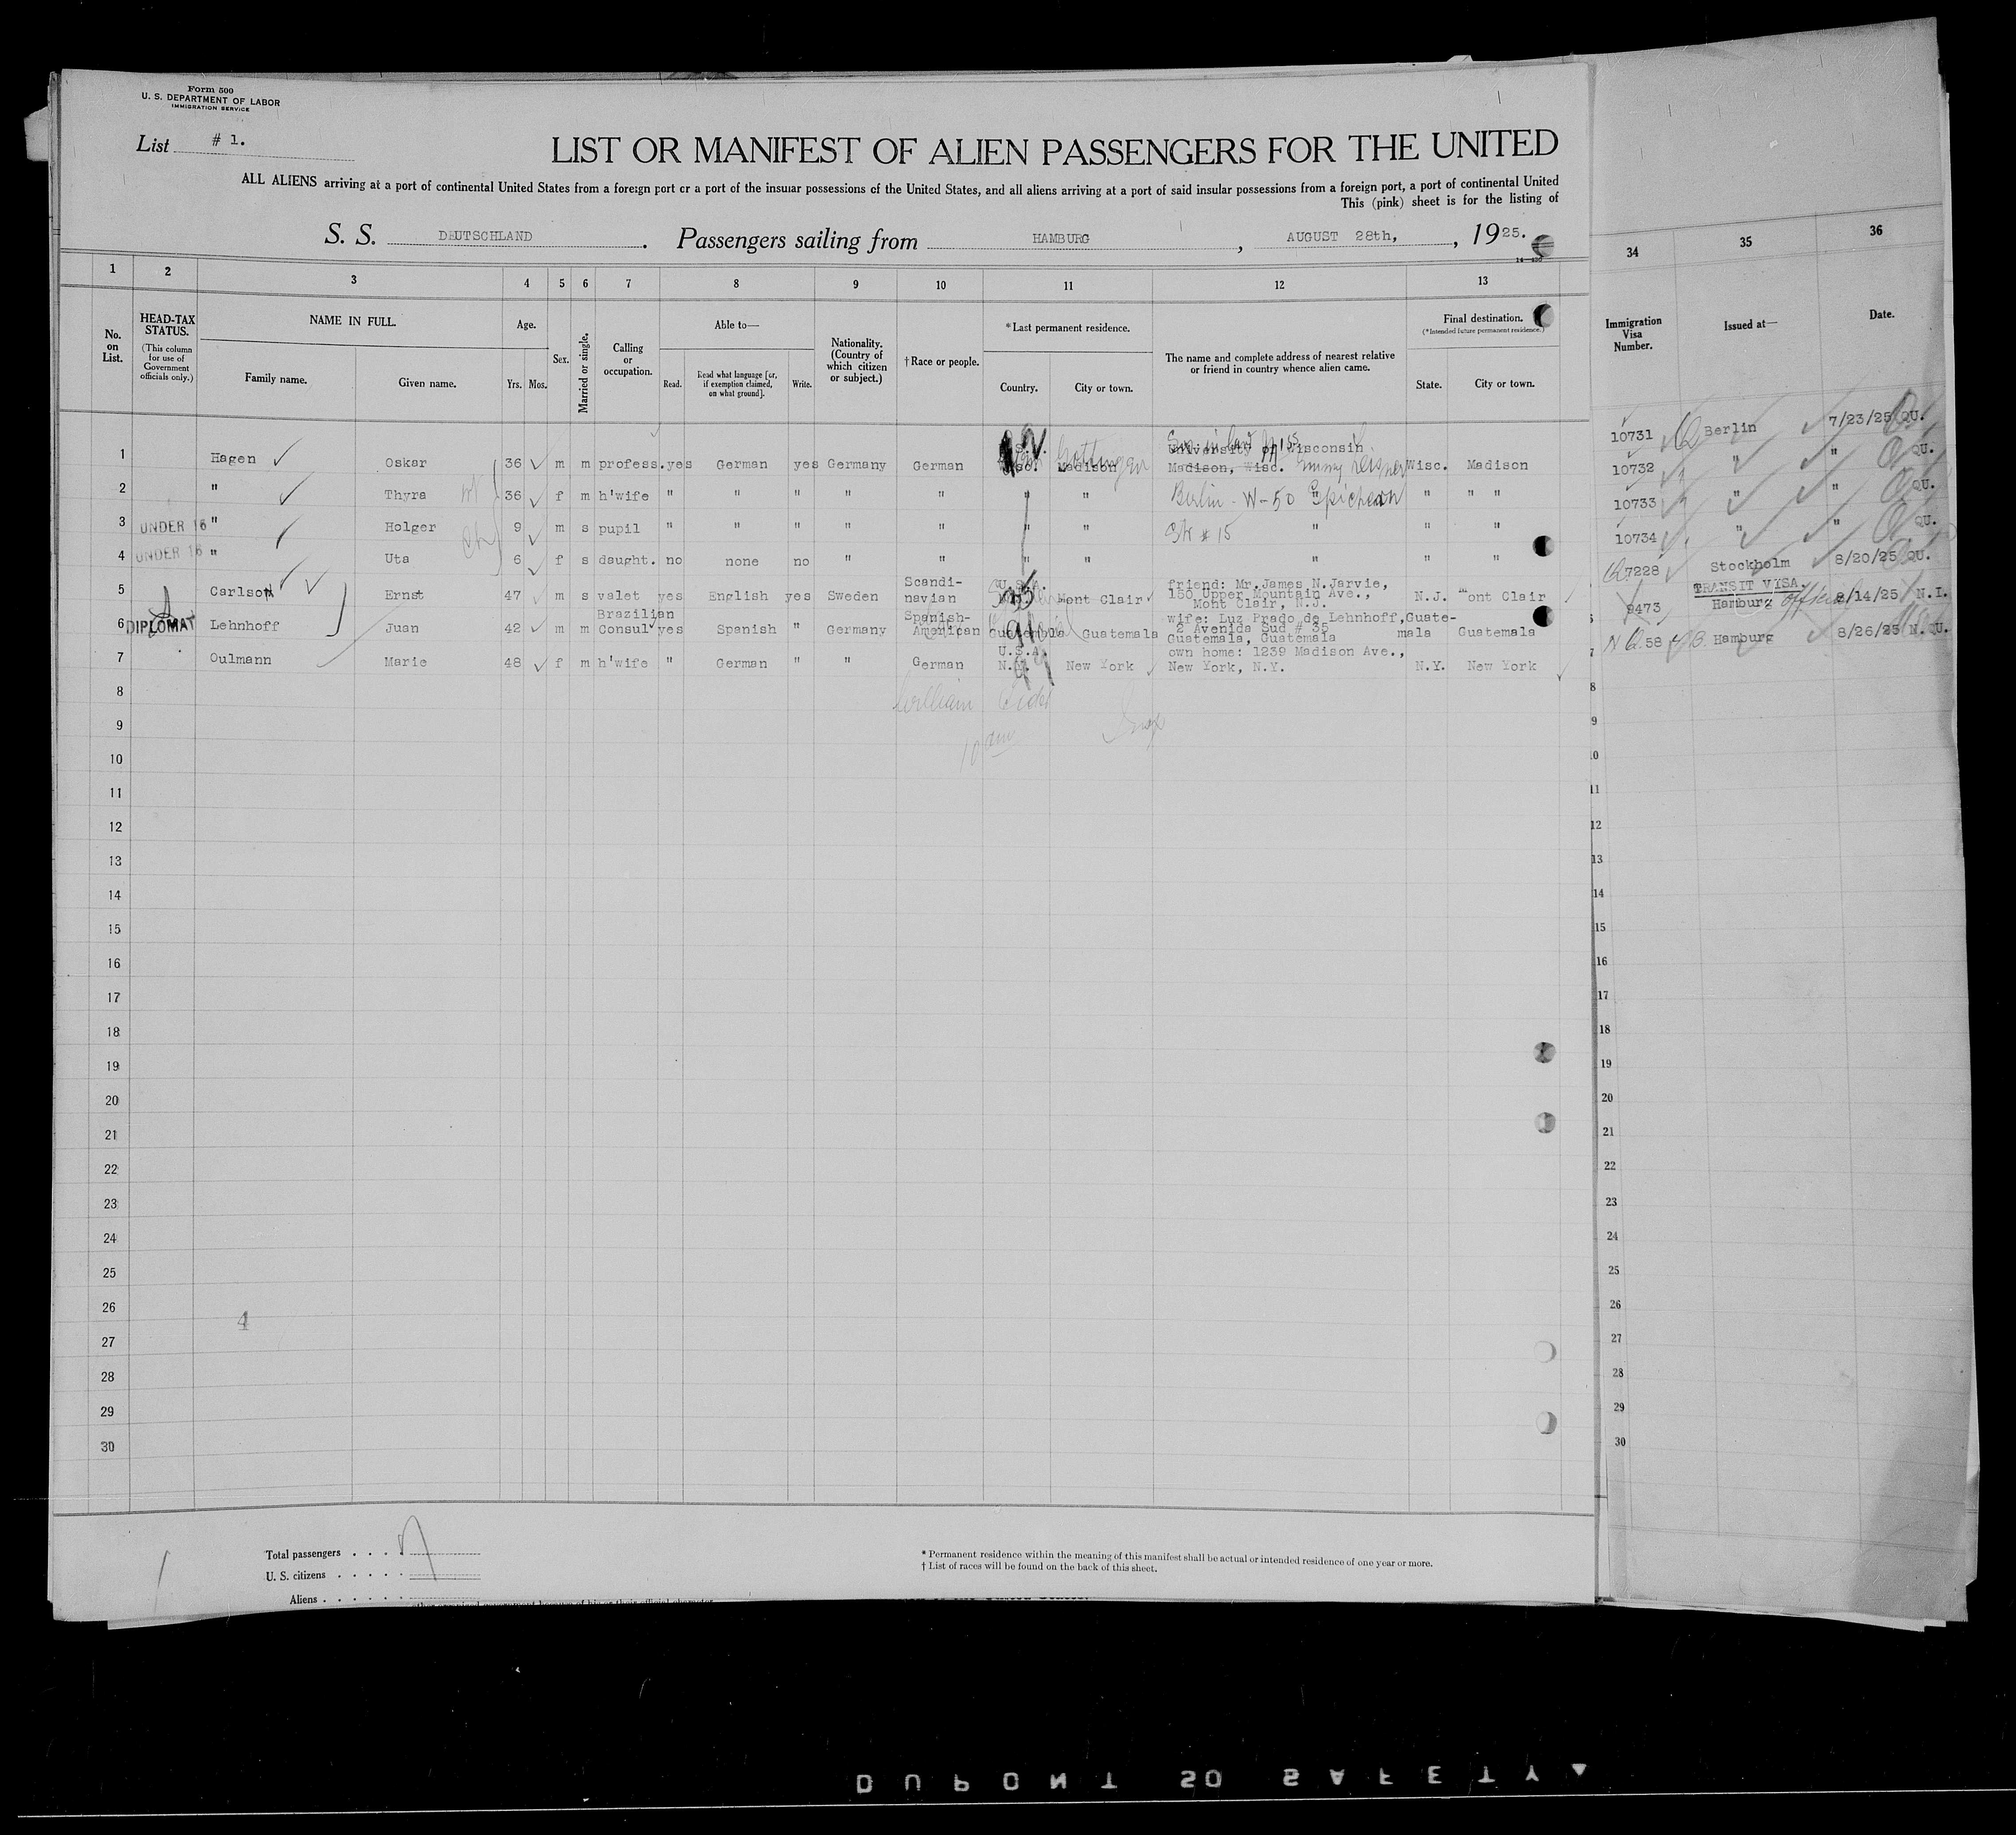 Form 500
U. S. DEPARTMENT OF LABOR
IMMIGRATION SERVICE
List # 1.
LIST OR MANIFEST OF ALIEN PASSENGERS FOR THE UNITED
ALL ALIENS arriving at a port of continental United States from a foreign port or a port of the insular possessions of the United States, and all aliens arriving at a port of said insular possessions from a foreign port, a port of continental United
This (pink) sheet is for the listing of
S. S. DEUTSCHLAND . Passengers sailing from HAMBURG , AUGUST 28th, , 1925.
1 2 3 4 5 6 7 8 9 10 11 12 13 34 35 36
No. on List.
HEAD-TAX STATUS.
(This column for use of Government officials only.)
NAME IN FULL.
Family name. Given name.
Age.
Yrs. Mos.
Sex.
Married or single.
Calling or occupation.
Able to—
Read. Read what language [or, if exemption claimed, on what ground]. Write.
Nationality. (Country of which citizen or subject.)
†Race or people.
*Last permanent residence.
Country. City or town.
The name and complete address of nearest relative or friend in country whence alien came.
Final destination.
(*Intended future permanent residence.)
State. City or town.
Immigration Visa Number.
Issued at—
Date.
1 Hagen Oskar 36 m m profess. yes German yes Germany German Wisc. Madison Gottingen University of Wisconsin Madison, Wisc. Emmy Wisc. Madison 10731 Berlin 7/23/25 QU.
2 " Thyra 36 f m h'wife " " " " " " " Berlin - W-50 " " " 10732 " " QU.
3 UNDER 16 " Holger 9 m s pupil " " " " " " " Str # 15 " " " 10733 " " QU.
4 UNDER 16 " Uta 6 f s daught. no none no " " " " " " " 10734 " " QU.
5 Carlson Ernst 47 m s valet yes English yes Sweden Scandinavian U.S.A. Mont Clair friend: Mr. James N. Jarvie, 150 Upper Mountain Ave., Mont Clair, N.J. N.J. Mont Clair 7228 Stockholm 8/20/25 QU.
6 DIPLOMAT Lehnhoff Juan 42 m m Brazilian Consul yes Spanish " Germany Spanish-American Guatemala Guatemala wife: Luz Prado de Lehnhoff, 2 Avenida Sud # 35 Guatemala, Guatemala Guate-mala Guatemala 9473 TRANSIT VISA. Hamburg 8/14/25 N.I.
7 Oulmann Marie 48 f m h'wife " German " " German U.S.A. N.Y. New York own home: 1239 Madison Ave., New York, N.Y. N.Y. New York 58 Hamburg 8/26/25 N.QU.
8 William 8
9 9
10 10 am 10
11 11
12 12
13 13
14 14
15 15
16 16
17 17
18 18
19 19
20 20
21 21
22 22
23 23
24 24
25 25
26 4 26
27 27
28 28
29 29
30 30
Total passengers . . . .
U. S. citizens . . . . .
Aliens . . . . . .
* Permanent residence within the meaning of this manifest shall be actual or intended residence of one year or more.
† List of races will be found on the back of this sheet.
DUPONT 50 SAFETY